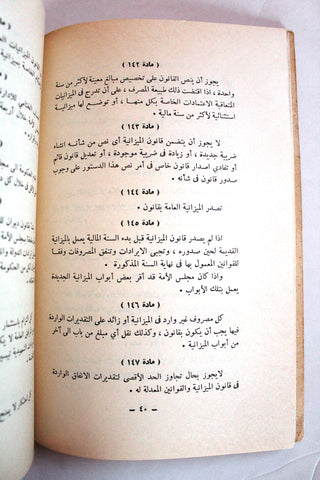 ( مادة ١٤٢ )
يجوز أن ينص القانون على تخصيص مبالغ معينة لأكثر من سنة
واحدة ، اذا اقتضت ذلك طبيعة المصرف ، على أن تدرج في الميزانيات
المتعاقبة الاعتمادات الخاصة بكل منها ، أو توضع لها ميزانية
استثنائية لأكثر من سنة مالية .
( مادة ١٤٣ )
لا يجوز أن يتضمن قانون الميزانية أى نص من شأنه انشاء
ضريبة جديدة ، أو زيادة فى ضريبة موجودة ، أو تعديل قانون قائم
أو تفادي اصدار قانون خاص فى أمر نص هذا الدستور على وجوب
صدور قانون فى شأنه .
( مادة ١٤٤ )
تصدر الميزانية العامة بقانون .
( مادة ١٤٥ )
اذا لم يصدر قانون الميزانية قبل بدء السنة المالية يعمل بالميزانية
القديمة لحين صدوره ، وتجبى الايرادات وتنفق المصروفات وفقا
للقوانين المعمول بها فى نهاية السنة المذكورة .
واذا كان مجلس الأمة قد أقر بعض أبواب الميزانية الجديدة
يعمل بتلك الأبواب .
( مادة ١٤٦ )
كل مصروف غير وارد فى الميزانية أو زائد على التقديرات الواردة
فيها يجب أن يكون بقانون ، وكذلك نقل أي مبلغ من باب الى آخر
من أبواب الميزانية .
( مادة ١٤٧ )
لايجوز بحال تجاوز الحد الأقصى لتقديرات الانفاق الواردة
فى قانون الميزانية والقوانين المعدلة له .
— ٤٠ —